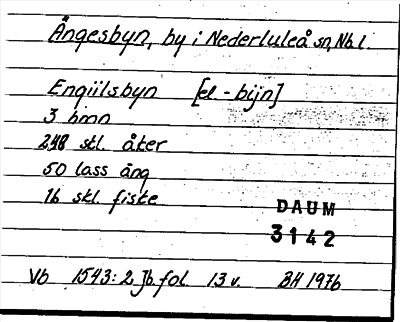 Ängesbyn, by i Nederluleå sn, Nb l.
Engiilsbyn [el. -bijn]
3 hmn
248 skl. åker
50 lass äng
16 skl. fiske
DAUM
3142
Vb 1543:2 Jb. fol. 13 v. BH 1976